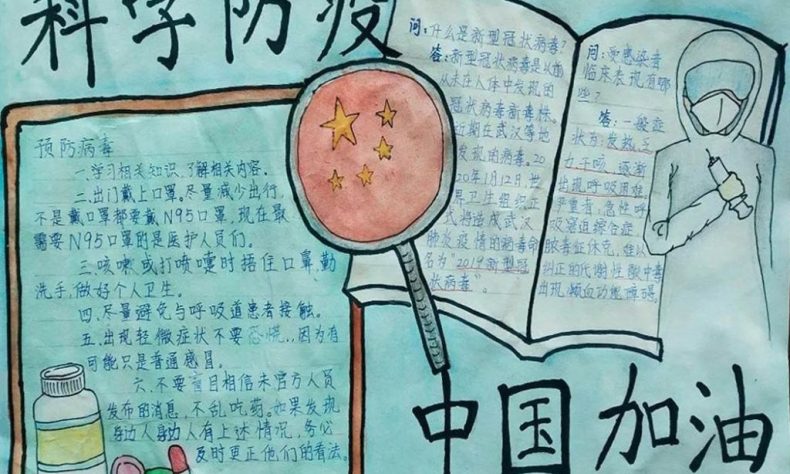 科学防疫
预防病毒
一.学习相关知识,了解相关内容。
二.出门戴上口罩。尽量减少出行,
不是戴口罩都要戴N95口罩,现在最
需要N95口罩的是医护人员们。
三.咳嗽或打喷嚏时捂住口鼻,勤
洗手,做好个人卫生。
四.尽量避免与呼吸道患者接触。
五.出现轻微症状不要恐慌..因为有
可能只是普通感冒。
六.不要盲目相信未官方人员
发布的消息,不乱吃药。如果发现
身边人身边人有上述情况,务必
及时更正他们的看法。
问:什么是新型冠状病毒?
答:新型冠状病毒是以前
从未在人体中发现的
冠状病毒新毒株。
近期在武汉等地
发现的病毒。20
20年1月12日,世
界卫生组织正
式将造成武汉
肺炎疫情的病毒命
名为“2019新型冠
状病毒”。
问:受感染者
临床表现有哪
些?
答:一般症
状有:发热、乏
力、干咳、逐渐
出现呼吸困难,
严重者:急性呼
吸窘迫综合症
脓毒症休克,难以
纠正的代谢性酸中毒
出现,凝血功能障碍.
中国加油